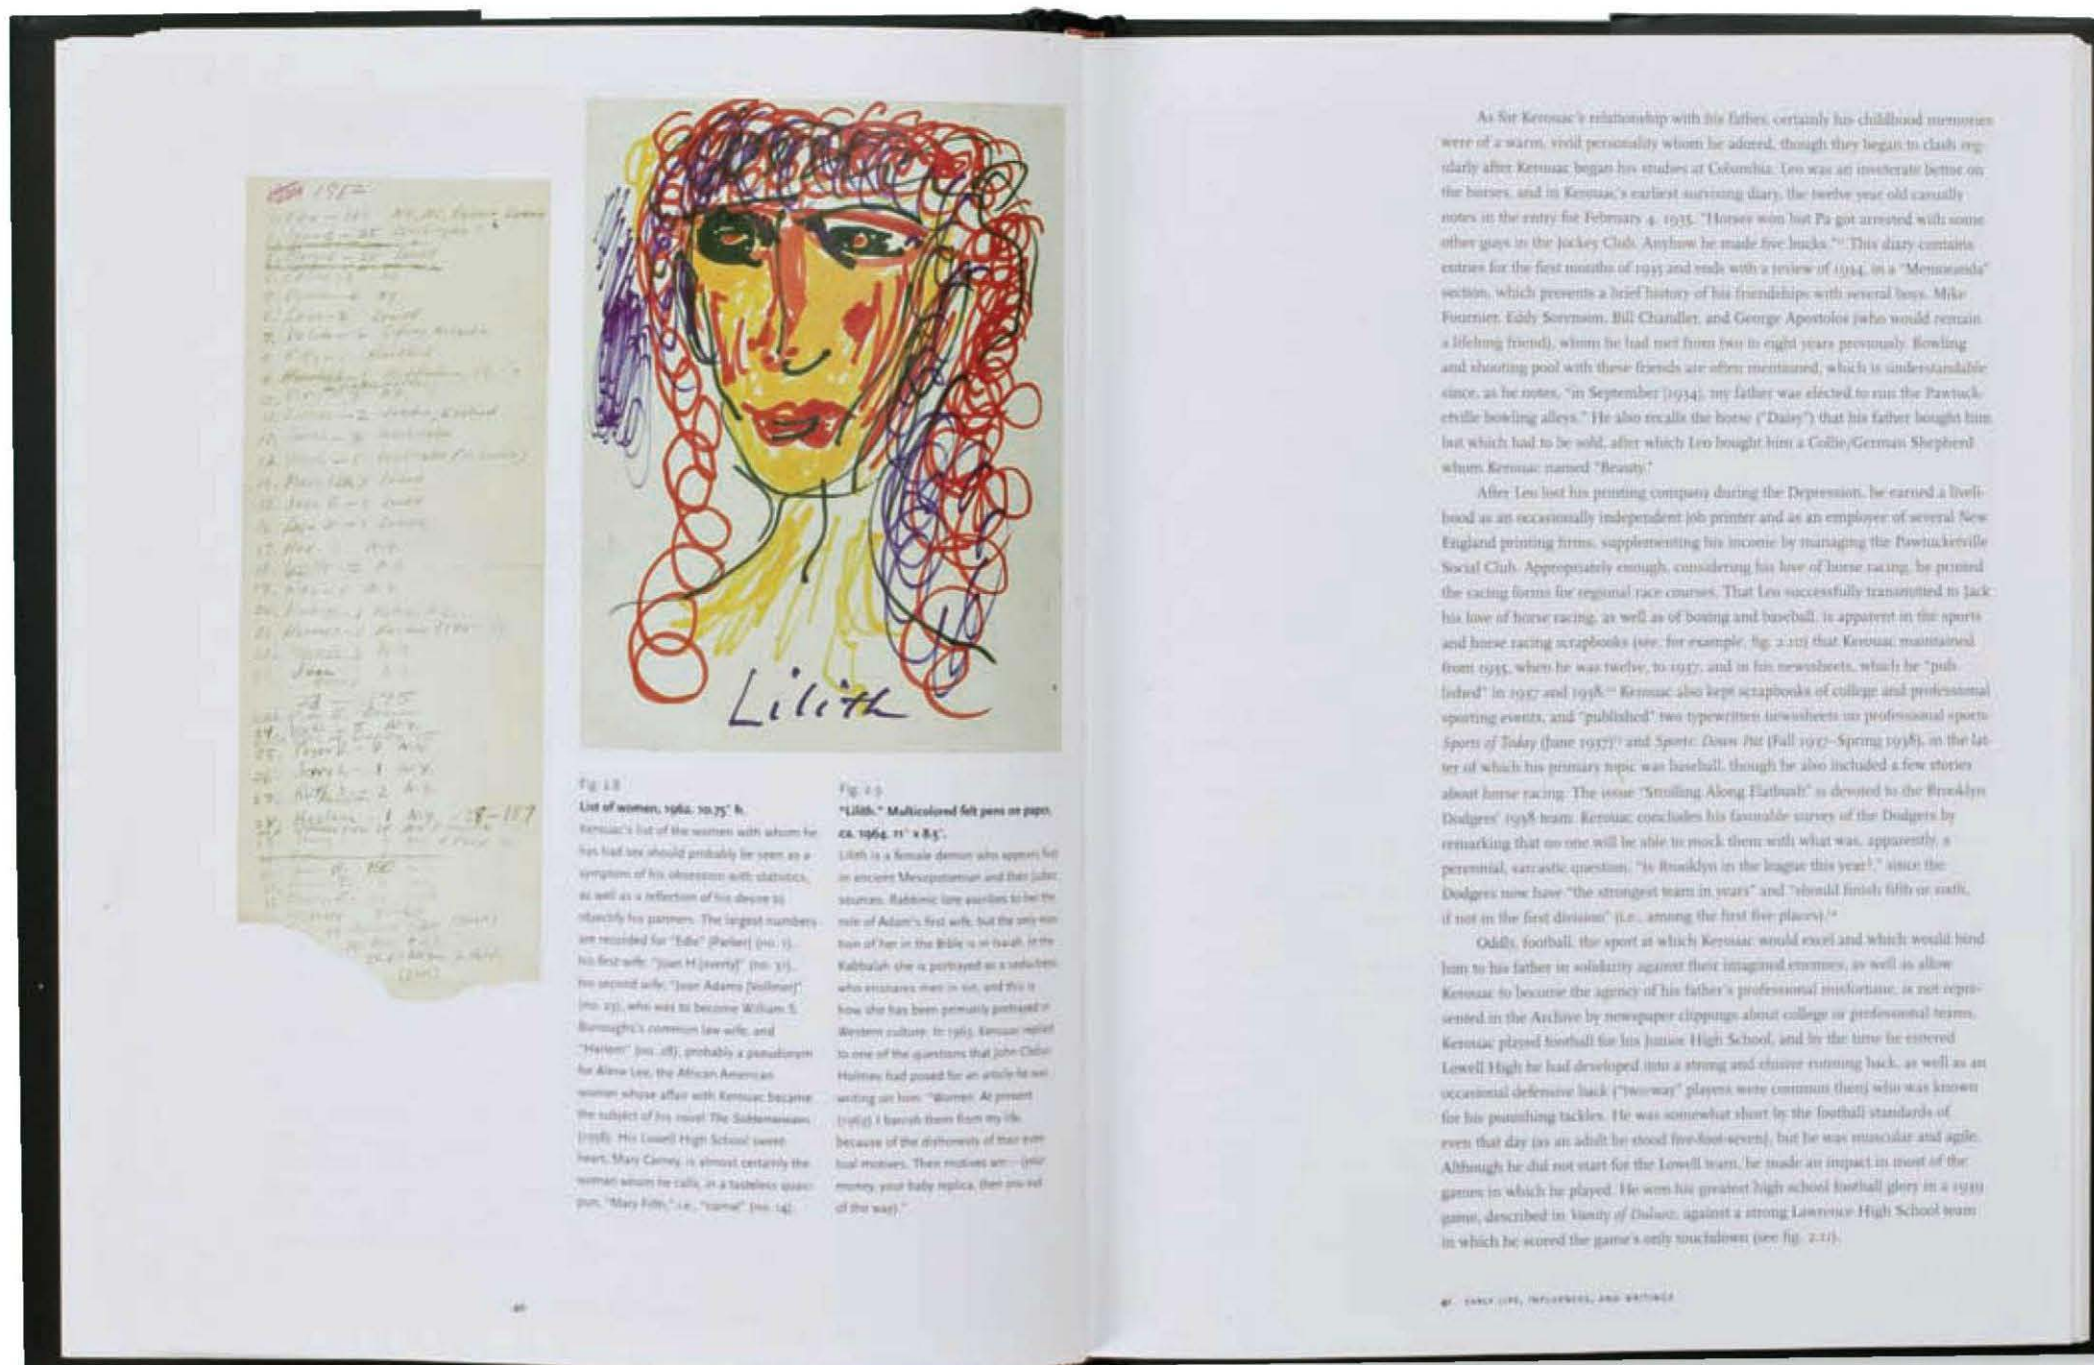 1962
Lilith
Fig. 2.8
List of women, 1962. 10.75" h.
Kerouac's list of the women with whom he
has had sex should probably be seen as a
symptom of his obsession with statistics,
as well as a reflection of his desire to
objectify his partners. The largest numbers
are recorded for "Edie" [Parker] (no. 1),
his first wife; "Joan H[averty]" (no. 31),
his second wife; "Joan Adams [Vollmer]"
(no. 23), who was to become William S.
Burroughs's common law wife; and
"Harlem" (no. 28), probably a pseudonym
for Alene Lee, the African American
woman whose affair with Kerouac became
the subject of his novel The Subterraneans
(1958). His Lowell High School sweet-
heart, Mary Carney, is almost certainly the
woman whom he calls, in a tasteless quasi-
pun, "Mary Filth," i.e., "carnal" (no. 14).
Fig. 2.9
"Lilith." Multicolored felt pens on paper,
ca. 1964. 11" x 8.5".
Lilith is a female demon who appears first
in ancient Mesopotamian and then Judaic
sources. Rabbinic lore ascribes to her the
role of Adam's first wife, but the only men-
tion of her in the Bible is in Isaiah. In the
Kabbalah she is portrayed as a seductress
who ensnares men in sin, and this is
how she has been primarily portrayed in
Western culture. In 1963, Kerouac replied
to one of the questions that John Clellon
Holmes had posed for an article he was
writing on him: "Women: At present
(1963) I banish them from my life
because of the dishonesty of their even-
tual motives. Their motives are—(your
money, your baby replica, then you out
of the way)."
40
As for Kerouac's relationship with his father, certainly his childhood memories
were of a warm, vivid personality whom he adored, though they began to clash reg-
ularly after Kerouac began his studies at Columbia. Leo was an inveterate bettor on
the horses, and in Kerouac's earliest surviving diary, the twelve year old casually
notes in the entry for February 4, 1935, "Horses won but Pa got arrested with some
other guys in the Jockey Club. Anyhow he made five bucks." This diary contains
entries for the first months of 1935 and ends with a review of 1934, in a "Memoranda"
section, which presents a brief history of his friendships with several boys, Mike
Fournier, Eddy Sorenson, Bill Chandler, and George Apostolos (who would remain
a lifelong friend), whom he had met from two to eight years previously. Bowling
and shooting pool with these friends are often mentioned, which is understandable
since, as he notes, "in September [1934], my father was elected to run the Pawtuck-
etville bowling alleys." He also recalls the horse ("Daisy") that his father bought him
but which had to be sold, after which Leo bought him a Collie/German Shepherd
whom Kerouac named "Beauty."
After Leo lost his printing company during the Depression, he earned a liveli-
hood as an occasionally independent job printer and as an employee of several New
England printing firms, supplementing his income by managing the Pawtucketville
Social Club. Appropriately enough, considering his love of horse racing, he printed
the racing forms for regional race courses. That Leo successfully transmitted to Jack
his love of horse racing, as well as of boxing and baseball, is apparent in the sports
and horse racing scrapbooks (see, for example, fig. 2.10) that Kerouac maintained
from 1935, when he was twelve, to 1937, and in his newssheets, which he "pub-
lished" in 1937 and 1938. Kerouac also kept scrapbooks of college and professional
sporting events, and "published" two typewritten newssheets on professional sports:
Sports of Today (June 1937) and Sports: Down Pat (Fall 1937–Spring 1938), in the lat-
ter of which his primary topic was baseball, though he also included a few stories
about horse racing. The issue "Strolling Along Flatbush" is devoted to the Brooklyn
Dodgers' 1938 team. Kerouac concludes his favorable survey of the Dodgers by
remarking that no one will be able to mock them with what was, apparently, a
perennial, sarcastic question, "Is Brooklyn in the league this year?," since the
Dodgers now have "the strongest team in years" and "should finish fifth or sixth,
if not in the first division" (i.e., among the first five places).
Oddly, football, the sport at which Kerouac would excel and which would bind
him to his father in solidarity against their imagined enemies, as well as allow
Kerouac to become the agency of his father's professional misfortune, is not repre-
sented in the Archive by newspaper clippings about college or professional teams.
Kerouac played football for his Junior High School, and by the time he entered
Lowell High he had developed into a strong and elusive running back, as well as an
occasional defensive back ("two-way" players were common then) who was known
for his punishing tackles. He was somewhat short by the football standards of
even that day (as an adult he stood five-foot-seven), but he was muscular and agile.
Although he did not start for the Lowell team, he made an impact in most of the
games in which he played. He won his greatest high school football glory in a 1939
game, described in Vanity of Duluoz, against a strong Lawrence High School team
in which he scored the game's only touchdown (see fig. 2.11).
41 EARLY LIFE, INFLUENCES, AND WRITINGS